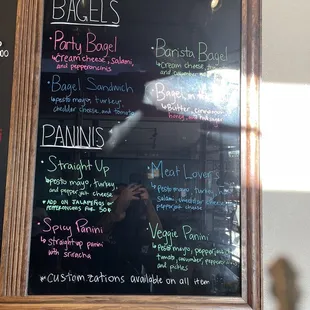 BAGELS
Party Bagel
Cream cheese, Salami,
and pepperoncinis
Barista Bagel
Cream cheese
and cucumber
Bagel Sandwich
pesto mayo, turkey,
cheddar cheese and tomato
Bagel
Butter, cinnamon
honey,
PANINIS
Straight Up
pesto mayo, turkey,
and pepper jack cheese
ADD ON JALAPEÑOS or
PEPPERONCINIS FOR 50¢
Meat Lover's
pesto mayo, turkey,
salami,
cheddar cheese
pepper jack cheese
Spicy Panini
straight up panini
with sriracha
Veggie Panini
Pesto mayo, pepperjack,
tomato, cucumber,
and pickles
*Customizations available on all item